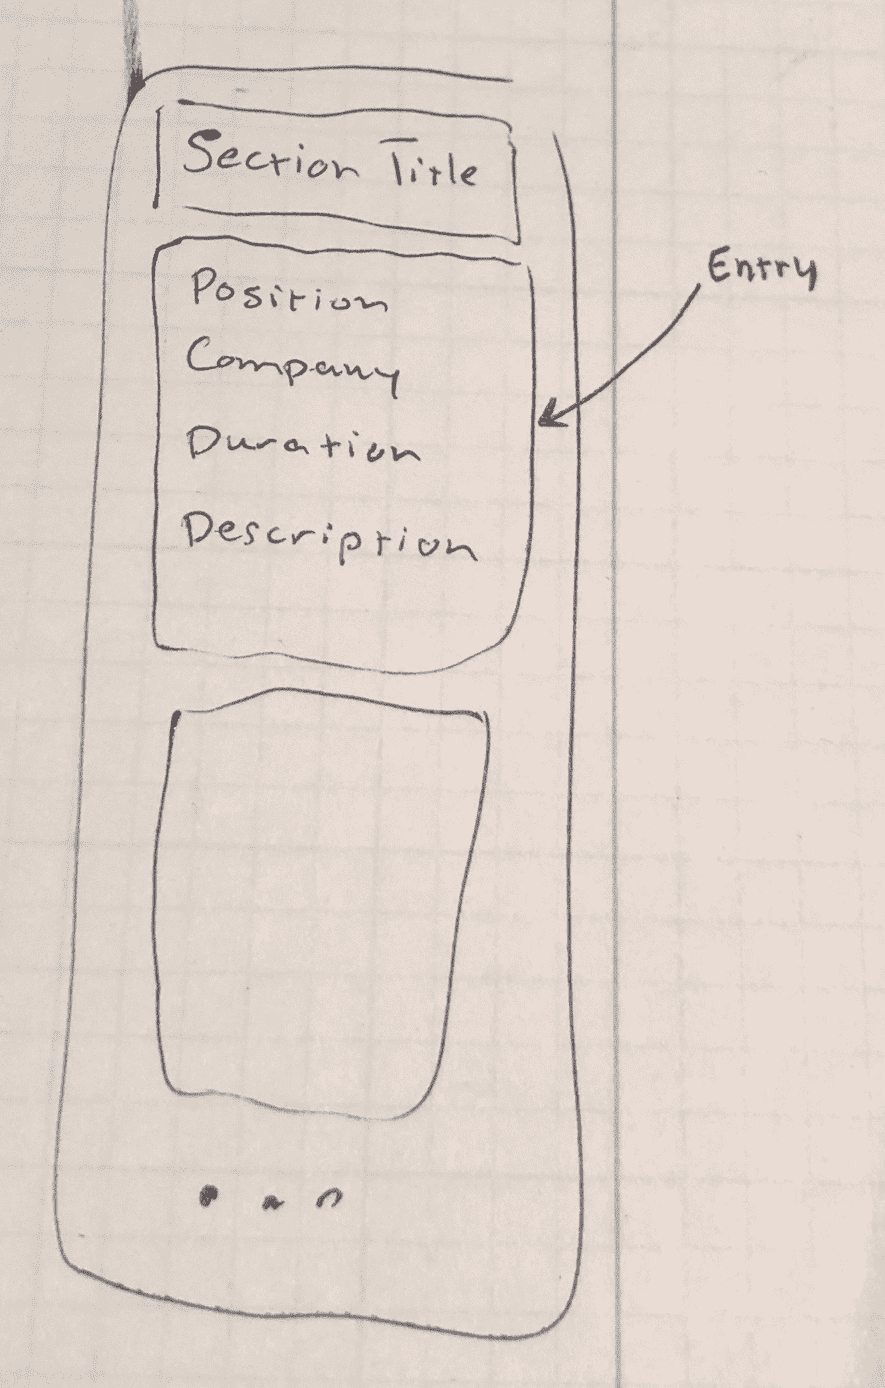 Section Title
Position
Company
Duration
Description
Entry